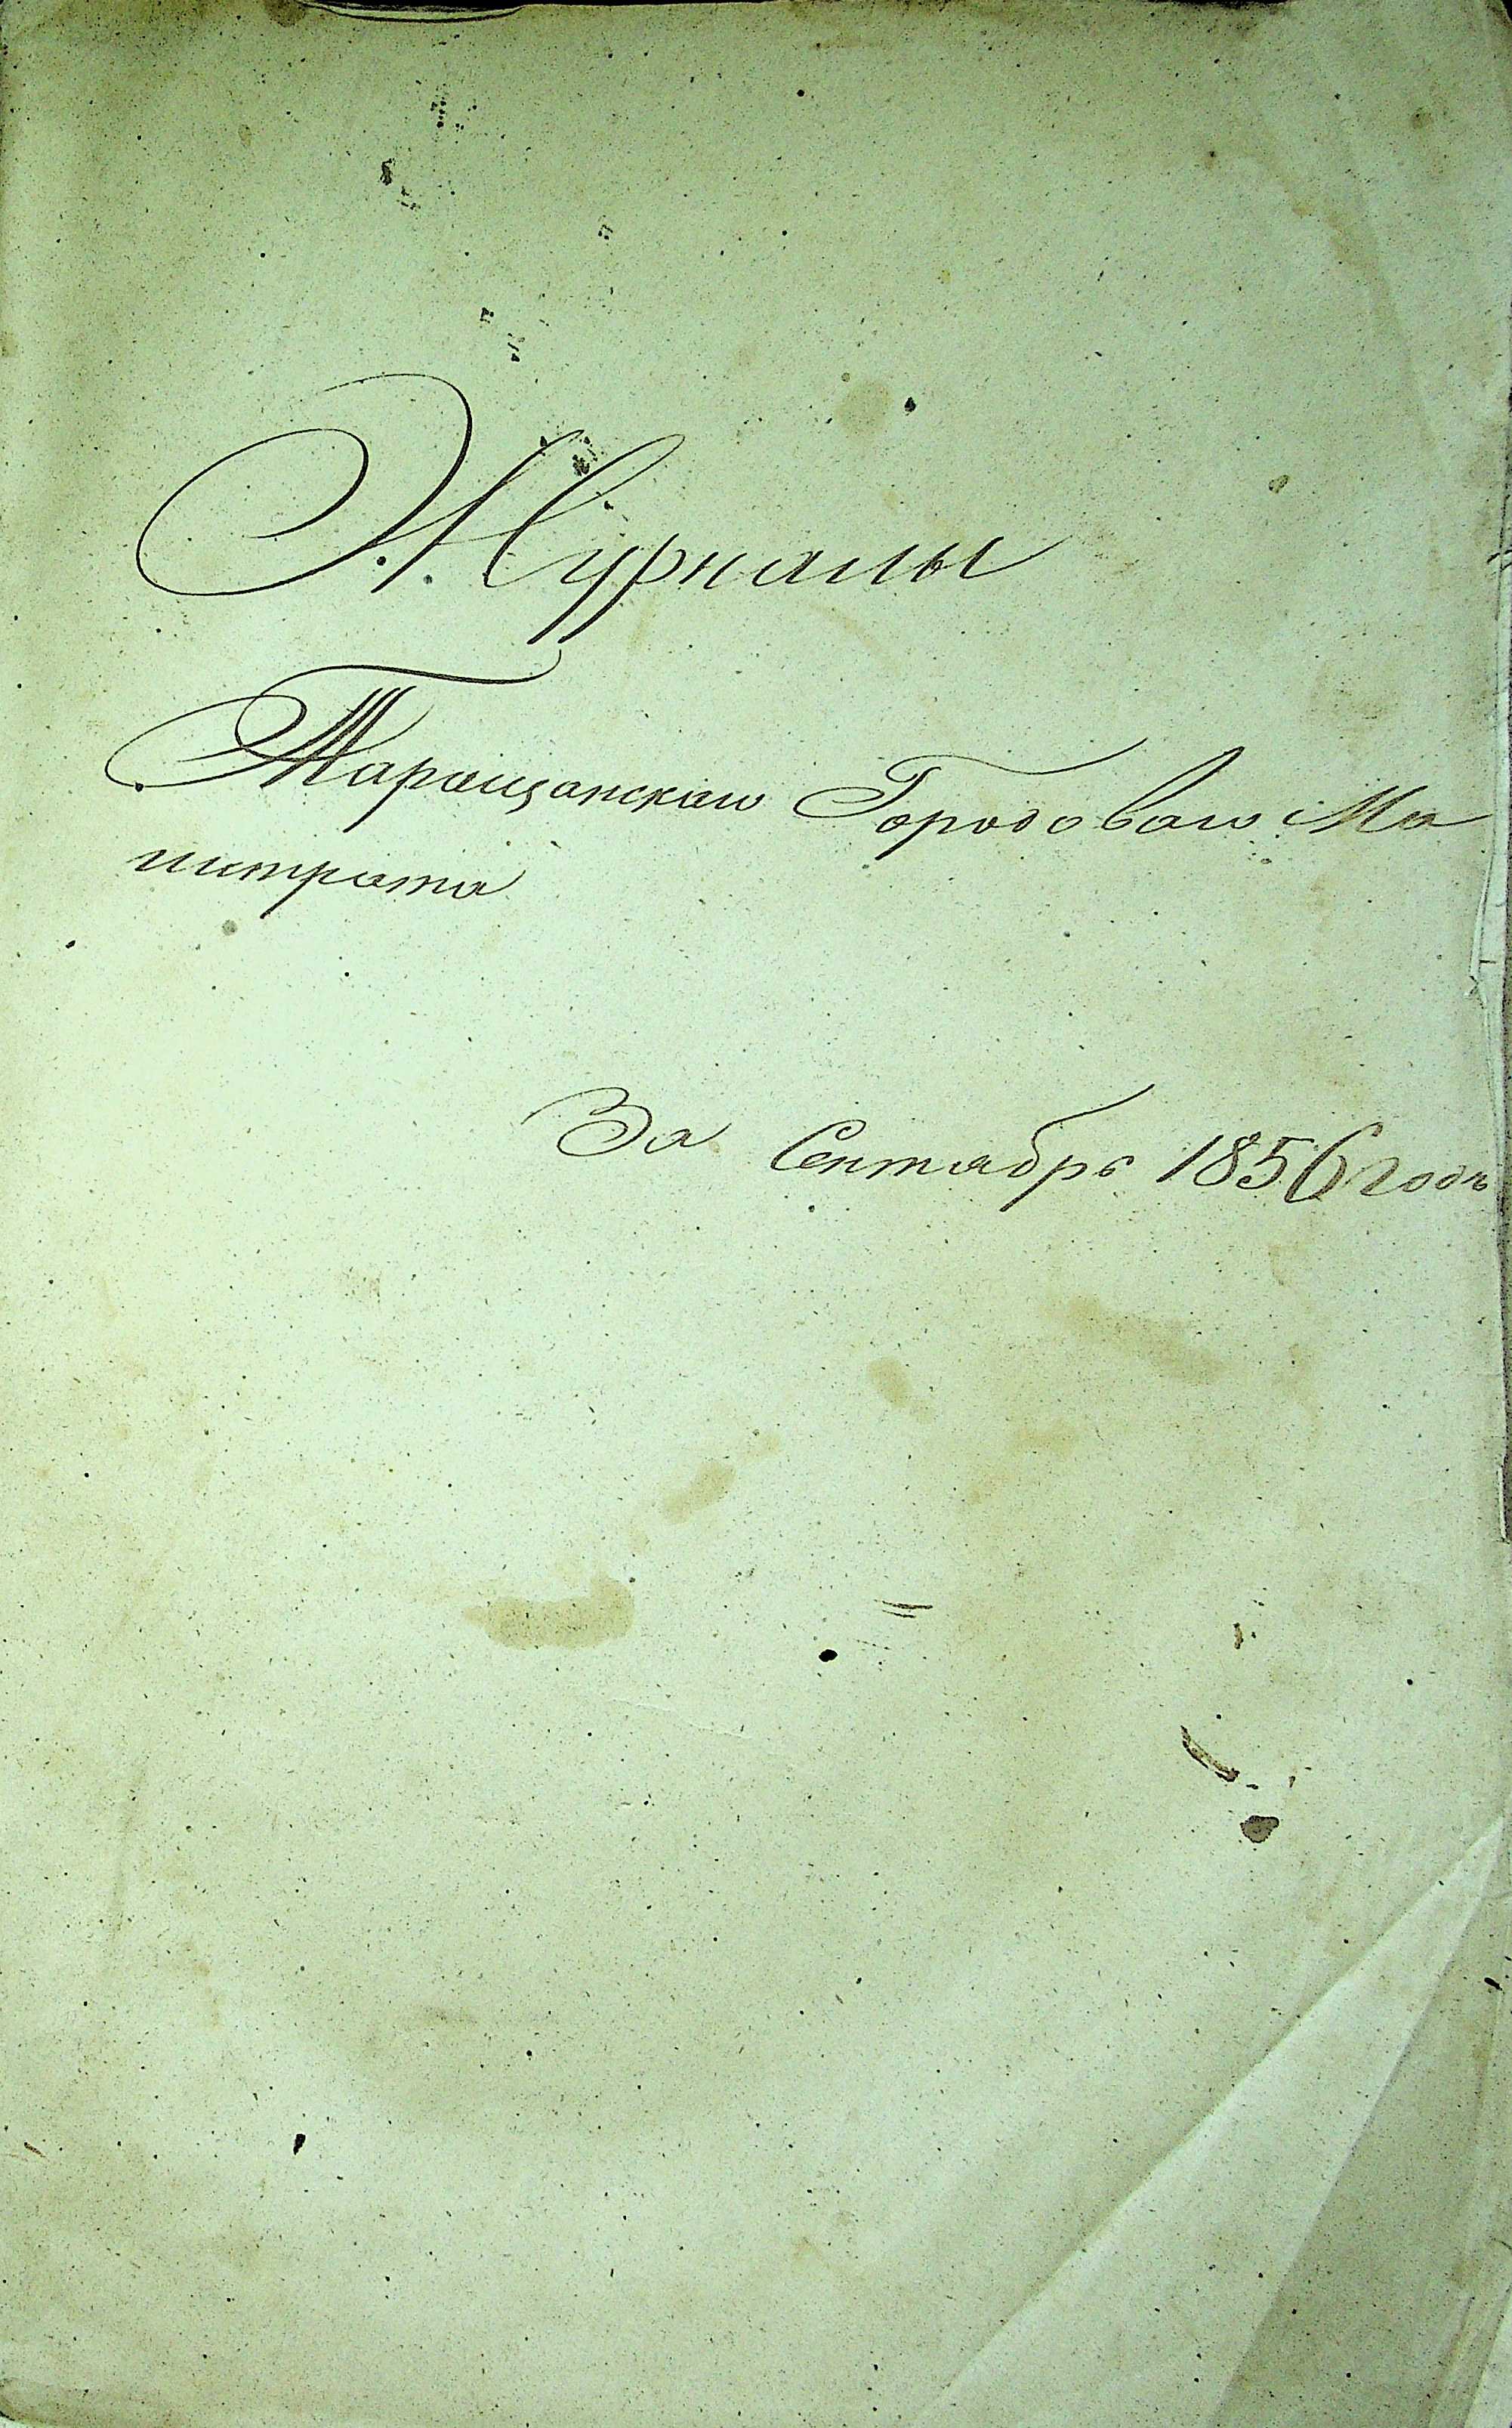 Журналы
Таращанскаго Городоваго Ма
гистрата
За Сентябрь 1856 годъ